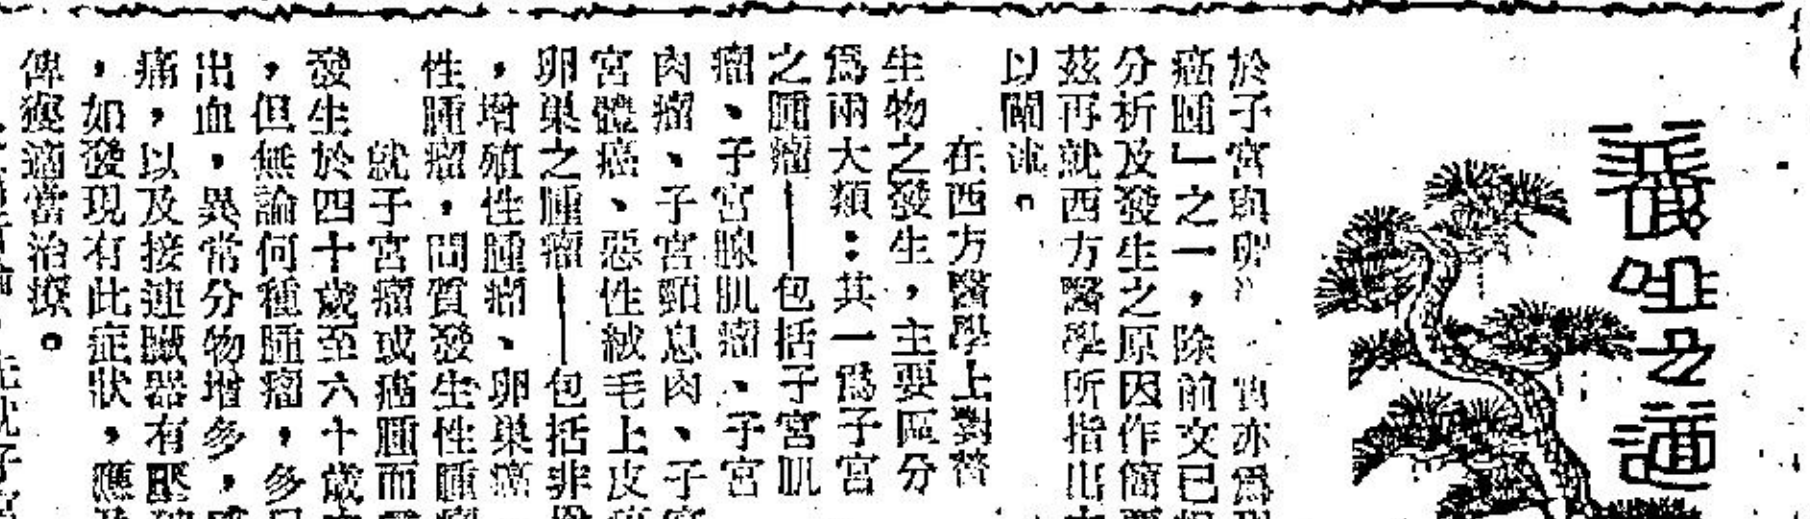 養生之道
於子宮與卵
癌腫」之一,除前文已
分析及發生之原因作簡
茲再就西方醫學所指出
以闡述。
在西方醫學上對營
生物之發生,主要區分
爲兩大類:其一爲子宮
之腫瘤——包括子宮肌
瘤、子宮腺肌瘤、子宮
肉瘤、子宮頸息肉、子
宮體癌、惡性絨毛上皮
卵巢之腫瘤——包括非
,增殖性腫瘤、卵巢癌
性腫瘤,間質發生性腫
就子宮瘤或癌腫而
發生於四十歲至六十歲
,但無論何種腫瘤,多
出血,異常分物增多,
痛,以及接連臟器有壓
,如發現有此症狀,應
俾獲適當治療。